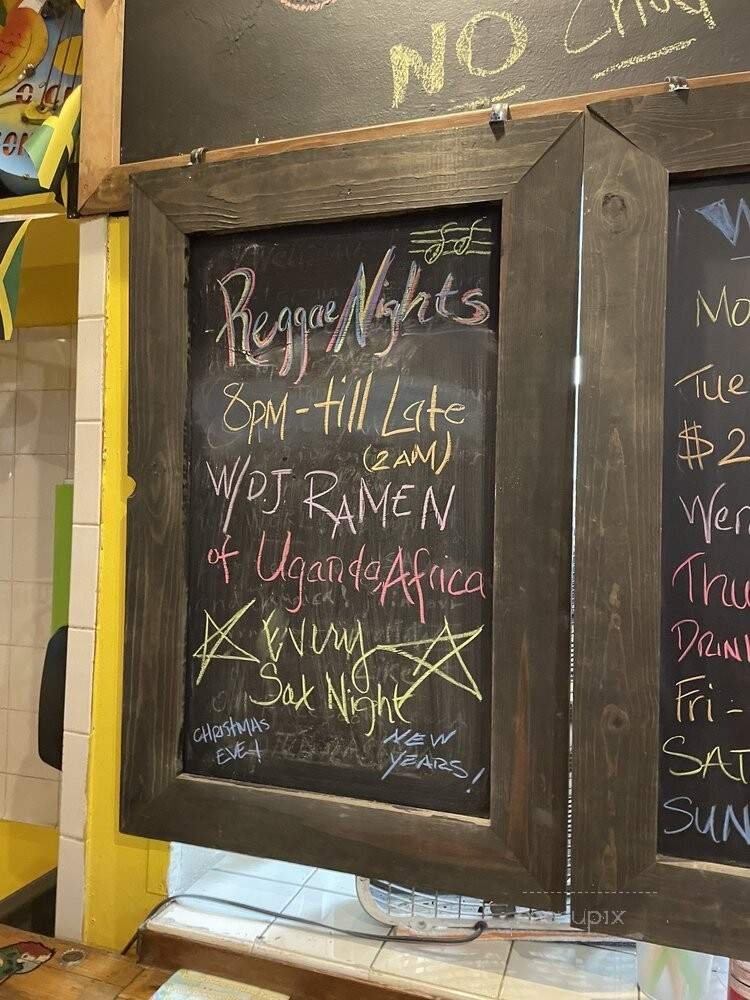 NO
Reggae Nights
8PM - till Late
(2AM)
W/DJ RAMEN
of Uganda, Africa
Every
Sat Night
CHRISTMAS
EVE +
NEW
YEARS!
Mo
Tue
$2
Wen
Thu
DRIN
Fri -
SAT
SUN